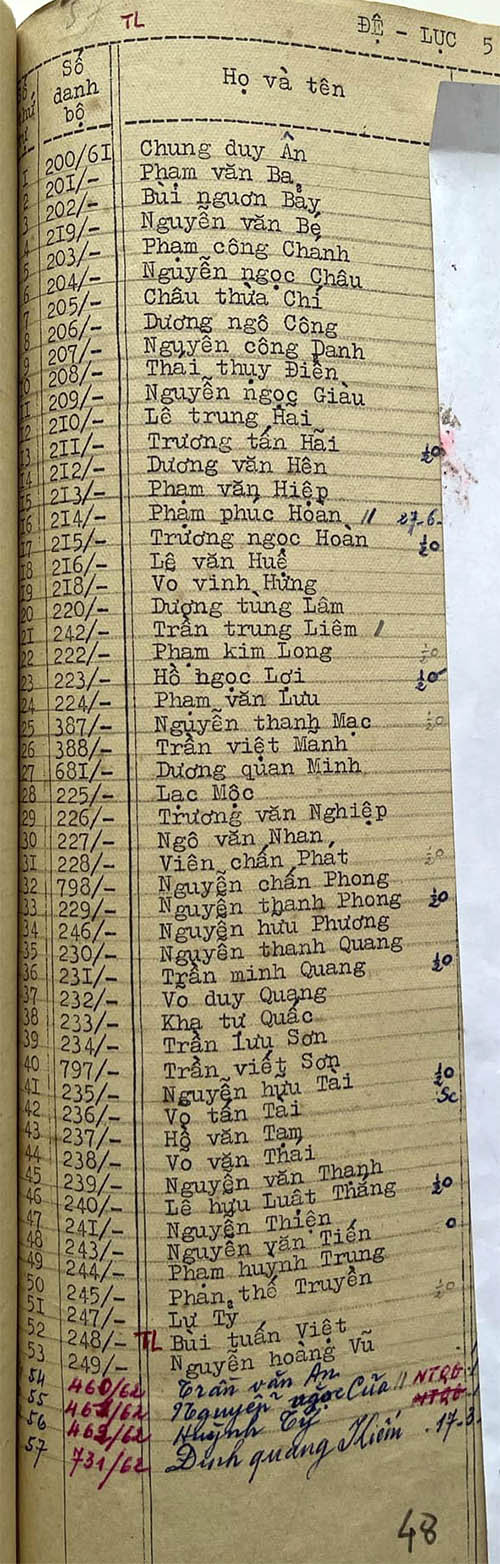 TL ĐỆ - LỤC 5
Số danh bộ Họ và tên
1 200/61 Chung duy Ân
2 201/- Phạm văn Ba
3 202/- Bùi ngươn Bảy
4 219/- Nguyễn văn Bé
5 203/- Phạm công Chánh
6 204/- Nguyễn ngọc Châu
7 205/- Châu thừa Chí
8 206/- Dương ngô Công
9 207/- Nguyễn công Danh
10 208/- Thái thụy Điền
11 209/- Nguyễn ngọc Giàu
12 210/- Lê trung Hải
13 211/- Trương tấn Hải
14 212/- Dương văn Hên
15 213/- Phạm văn Hiệp
16 214/- Phạm phúc Hoan // 27-6-
17 215/- Trương ngọc Hoàn
18 216/- Lê văn Huê
19 218/- Vo vinh Hưng
20 220/- Dương tùng Lâm
21 242/- Trần trung Liêm /
22 222/- Phạm kim Long
23 223/- Hồ ngọc Lợi
24 224/- Phạm văn Lưu
25 387/- Nguyễn thanh Mạc
26 388/- Trần việt Mãnh
27 681/- Dương quan Minh
28 225/- Lạc Mộc
29 226/- Trương văn Nghiệp
30 227/- Ngô văn Nhan
31 228/- Viên chấn Phát
32 798/- Nguyễn chấn Phong
33 229/- Nguyễn thanh Phong
34 246/- Nguyễn hữu Phương
35 230/- Nguyễn thanh Quang
36 231/- Trần minh Quang
37 232/- Võ duy Quang
38 233/- Kha tư Quốc
39 234/- Trần lưu Sơn
40 797/- Trần viết Sơn
41 235/- Nguyễn hữu Tài
42 236/- Vo tấn Tài Sc
43 237/- Hồ văn Tam
44 238/- Võ văn Thái
45 239/- Nguyễn văn Thạnh
46 240/- Lê hữu Luật Thắng
47 241/- Nguyễn Thiện
48 243/- Nguyễn văn Tiến
49 244/- Phạm huỳnh Trung
50 245/- Phan thế Truyền
51 247/- Lự Tỷ
52 248/- TL Bùi tuấn Việt
53 249/- Nguyễn hoàng Vũ
54 460/62 Trần văn An
55 /62 Nguyễn ngọc Của // NTQG
56 /62 Huỳnh Tỷ
57 731/62 Đinh quang Kiếm 17-3
48